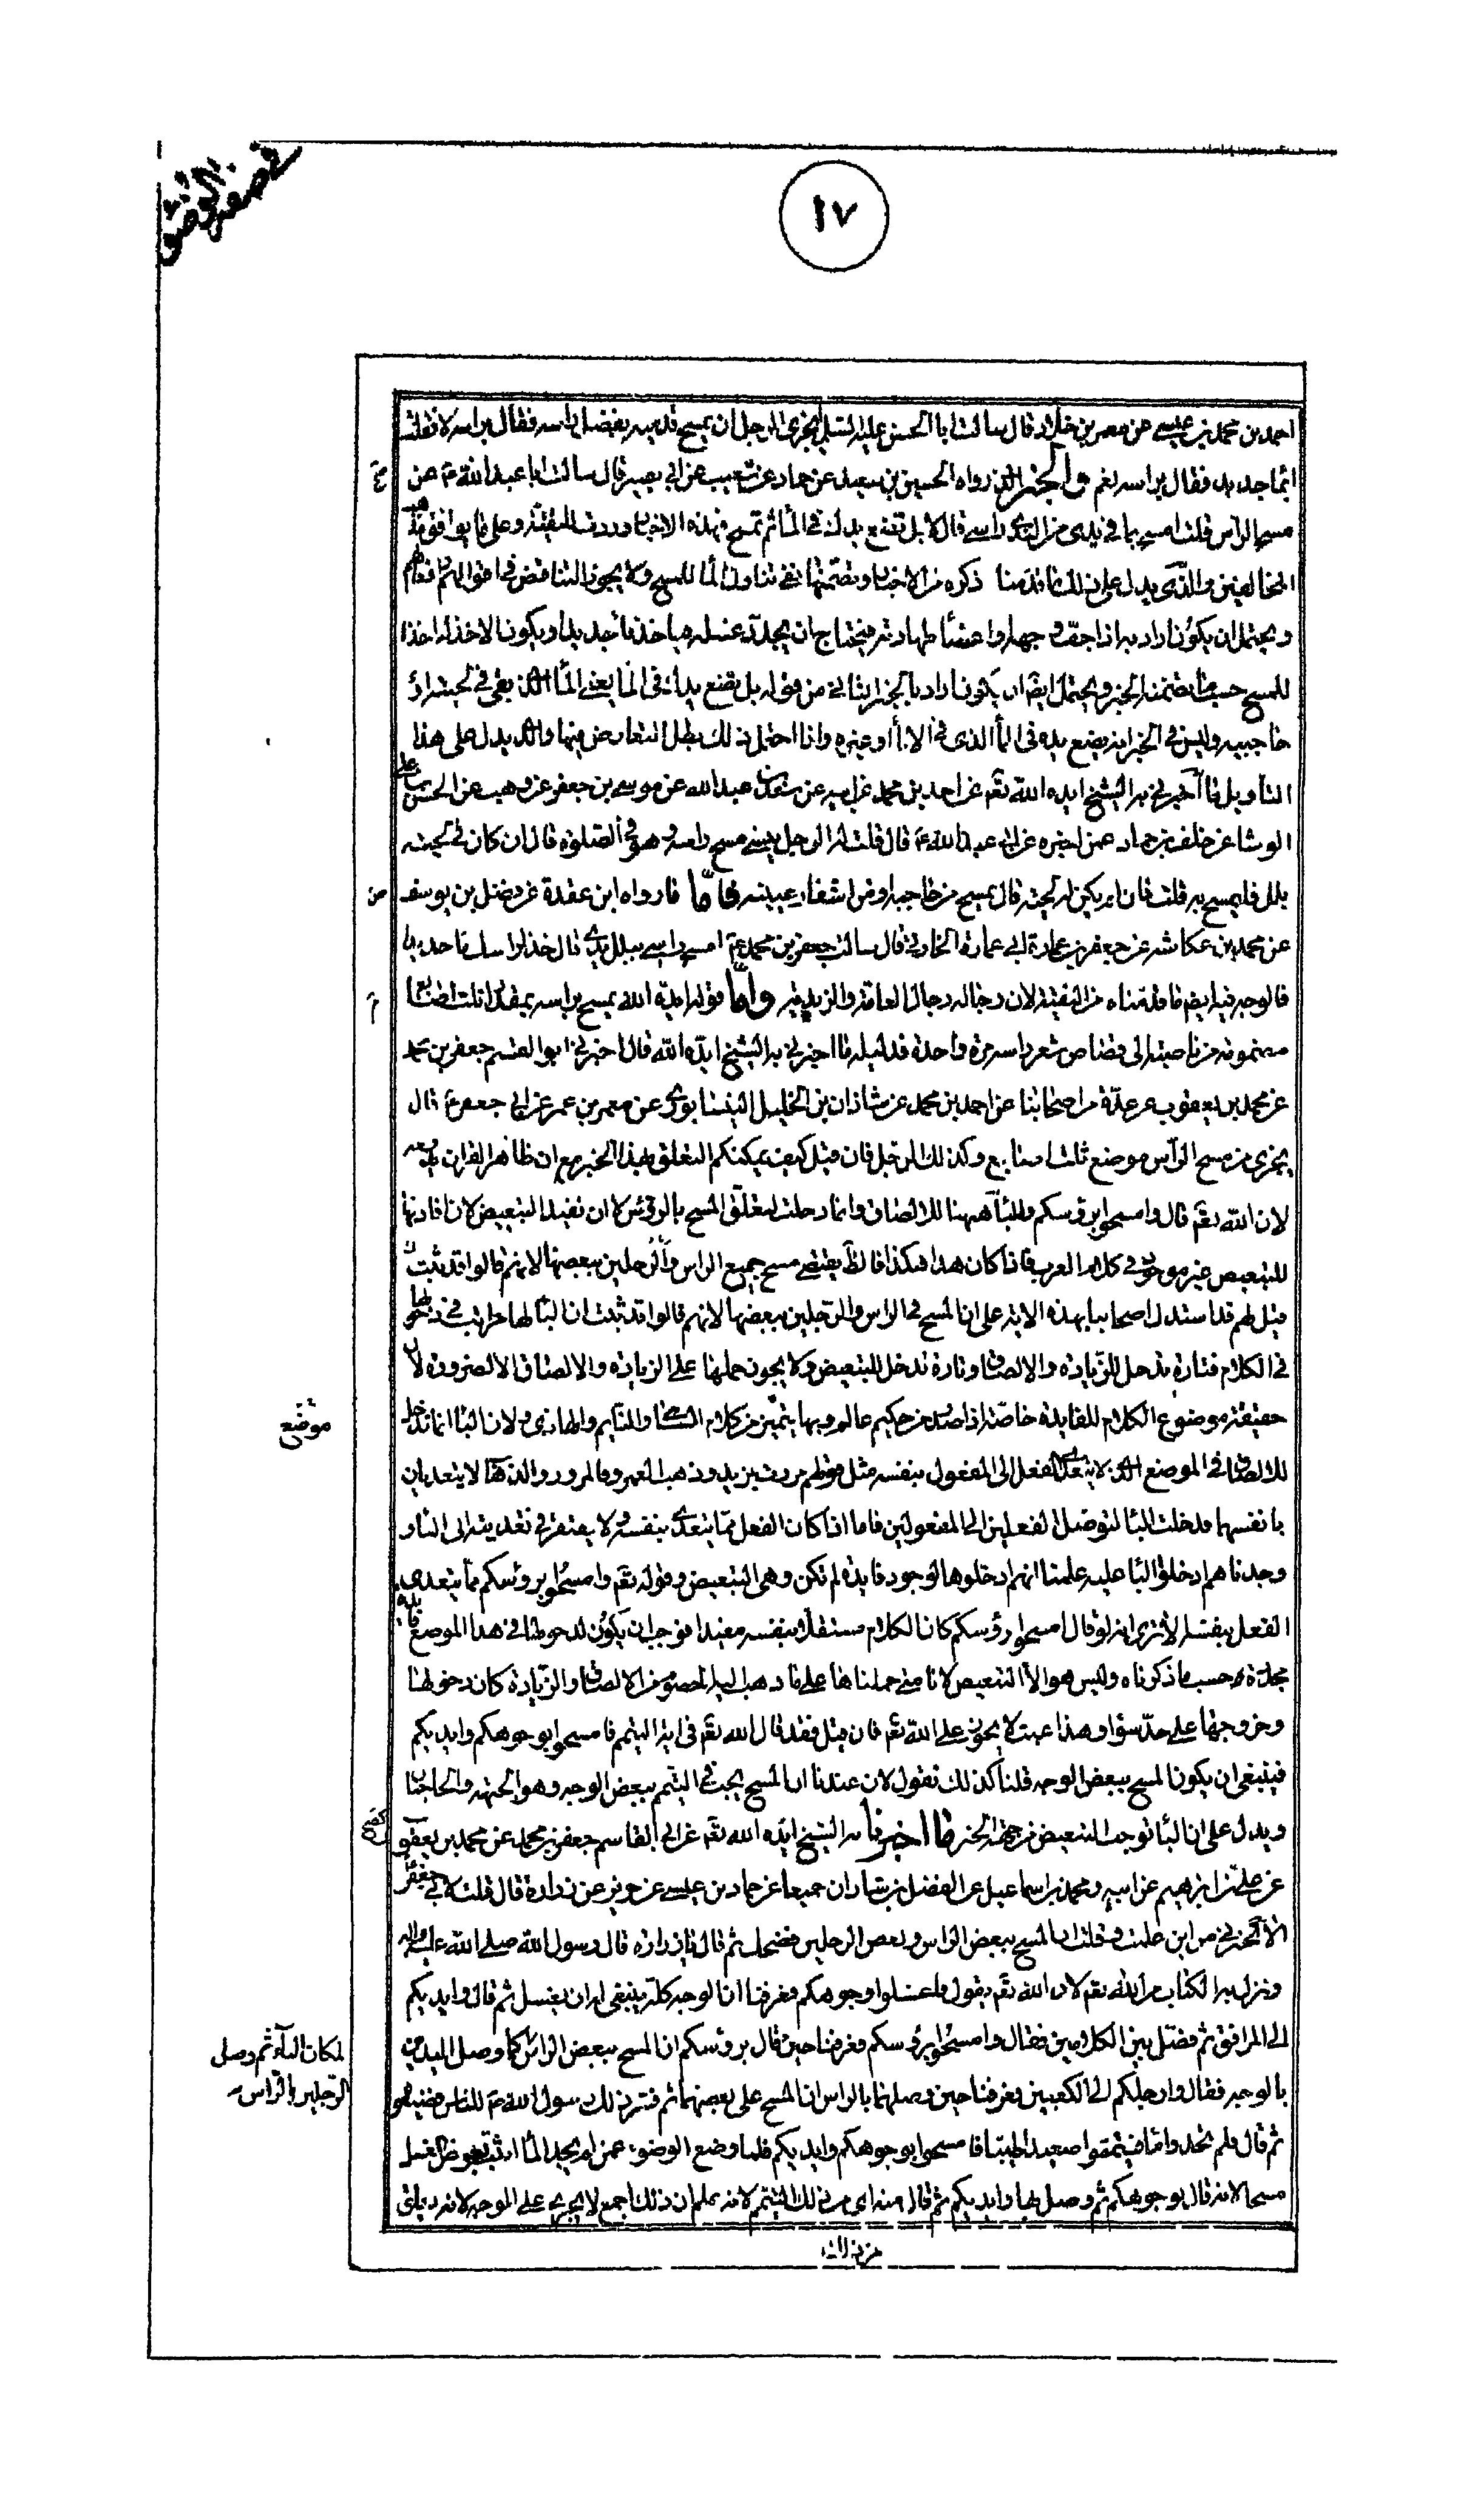 في صفة الوضوء
١٧
احمد بن محمد بن عيسى عن معمر بن خلاد قال سالت ابا الحسن عليه السلم ايجزى الرجل ان يمسح قدميه بفضل راسه فقال براسه لا فقلت
ابماء جديد فقال براسه نعم والخبر الذى رواه الحسين بن سعيد عن حماد عن شعيب عن ابى بصير قال سالت ابا عبد الله ع عن
مسح الراس قلت امسح بما فى يدى من الندى راسى قال لا بل تضع يدك فى الماء ثم تمسح فهذه الاخبار وردت للتقية وعلى ما يوافق مذهب
المخالفين والذى يدل على ذلك ما قدمنا ذكره من الاخبار وتضمنها نفى تناول الماء للمسح ولا يجوز التناقض فى اقوالهم وافعالهم
ويحتمل ان يكون اراد به اذا جف وجهه او اعضاء طهارته فيحتاج ان يجدد غسله فياخذ ماء جديدا ويكون الاخذ له اخذا
للمسح حسب ما تضمنه الخبر ويحتمل ايضا ان يكون اراد بالخبر الثانى من قوله بل تضع يدك فى الماء يعنى الماء الذى بقى فى لحيته او
حاجبيه وليس فى الخبر انه يضع يده فى الماء الذى فى الاناء او غيره واذا احتمل ذلك بطل التعارض فيها والذى يدل على هذا
التاويل ما اخبرنى به الشيخ ايده الله تعم عن احمد بن محمد عن ابيه عن سعد بن عبد الله عن موسى بن جعفر عن وهب عن الحسن بن على
الوشا عن خلف بن حماد عمن اخبره عن ابى عبد الله ع قال قلت له الرجل ينسى مسح راسه وهو فى الصلوة قال ان كان فى لحيته
بلل فليمسح به قلت فان لم يكن له لحية قال يمسح من حاجبه او من اشفار عينيه فاما ما رواه ابن عقدة عن فضل بن يوسف
عن محمد بن عكاشه عن جعفر بن عمارة ابى عمارة الحارثى قال سالت جعفر بن محمد ع امسح راسى ببلل يدى قال خذ لراسك ماء جديدا
فالوجه فيه ايضا ما قدمناه من التقية لان رجاله رجال العامة والزيدية واما قوله ايده الله يمسح براسه بمقدار ثلث اصابع
مضمومة من ناصيته الى قصاص شعر راسه مرة واحدة فدليله ما اخبرنى به الشيخ ايده الله قال اخبرنى ابو القسم جعفر بن محمد
عن محمد بن يعقوب عن عدة من اصحابنا عن احمد بن محمد عن شاذان بن الخليل النيسابورى عن معمر بن عمر عن ابى جعفر ع قال
يجزى من مسح الراس موضع ثلث اصابع وكذلك الرجل فان قيل كيف يمكنكم التعلق بهذا الخبر مع ان ظاهر القران يدفعه
لان الله تعم قال وامسحوا برؤسكم والباء ههنا للالصاق وانما دخلت لتعلق المسح بالرؤس لا ان تفيد التبعيض لان افادتها
للتبعيض غير موجود فى كلام العرب فاذا كان هذا هكذا فالظ يقتضى مسح جميع الراس والرجلين ببعضها لانهم قالوا قد ثبت ان
قيل لهم قد استدل اصحابنا بهذه الاية على ان المسح فى الراس والرجلين ببعضها لانهم قالوا قد ثبت ان الباء لها مراتب فى دخولها
فى الكلام فتارة تدخل للزيادة والالصاق وتارة تدخل للتبعيض ولا يجوز حملها على الزيادة والالصاق الا لضرورة لان
حقيقة موضوع الكلام للفايدة خاصة اذا صدر من حكيم عالم وبها يتميز من كلام الساهى والنايم والهاذى ولان الباء انما تدخل
للالصاق فى الموضع الذى لا يتعدى الفعل الى المفعول بنفسه مثل قولهم مررت بزيد وذهبت بعمرو فالمرور والذهاب لا يتعديان
بانفسهما فدخلت الباء لتوصل الفعلين الى المفعولين فاما اذا كان الفعل مما يتعدى بنفسه ولا يفتقر فى تعديته الى الباء و
وجدناهم ادخلوا الباء عليه علمنا انهم ادخلوها لوجود فايدة لم تكن وهى التبعيض وقوله تعم وامسحوا برؤسكم مما يتعدى
الفعل بنفسه الا ترى انه لو قال امسحوا رؤسكم كان الكلام مستقلا بنفسه مفيدا فوجب ان يكون لدخولها فى هذا الموضع فايدة
مجددة حسب ما ذكرناه وليس هو الا التبعيض لانا متى حملناها على ما ذهب اليه الخصوم من الالصاق والزيادة كان دخولها
وخروجها على حد سواء وهذا عبث لا يجوز على الله تعم فان قيل فقد قال الله تعم فى اية التيمم فامسحوا بوجوهكم وايديكم
فينبغى ان يكون المسح ببعض الوجه قلنا كذلك نقول لان عندنا ان المسح يجب فى التيمم ببعض الوجه وهو الجبهة والحاجبان
ويدل على ان الباء توجب التبعيض من جهة الخبر ما اخبرنا به الشيخ ايده الله تعم عن ابى القاسم جعفر بن محمد عن محمد بن يعقوب
عن على بن ابرهيم عن ابيه ومحمد بن اسماعيل عن الفضل بن شاذان جميعا عن حماد بن عيسى عن حريز عن زرارة قال قلت لابى جعفر ع
الا تخبرنى من اين علمت وقلت ان المسح ببعض الراس وبعض الرجلين فضحك ثم قال يا زرارة قال رسول الله صلى الله عليه واله
ونزل به الكتاب من الله تعم لان الله تعم يقول فاغسلوا وجوهكم فعرفنا ان الوجه كله ينبغى له ان يغسل ثم قال وايديكم
الى المرافق ثم فصل بين الكلامين فقال وامسحوا برؤسكم فعرفنا حين قال برؤسكم ان المسح ببعض الراس كما وصل اليدين
لمكان الباء ثم وصل
الرجلين بالراس
بالوجه فقال وارجلكم الى الكعبين فعرفنا حين وصلها بالراس ان المسح على بعضهما ثم فسر ذلك رسول الله ص للناس فضيعوه
ثم قال فلم تجدوا ماء فتيمموا صعيدا طيبا فامسحوا بوجوهكم وايديكم فلما وضع الوضوء عمن لم يجد الماء اثبت بعوض الغسل
مسحا لانه قال بوجوهكم ثم وصل بها وايديكم ثم قال منه اى من ذلك التيمم لانه علم ان ذلك اجمع لا يجرى على الوجه لانه يعلق
من ذلك